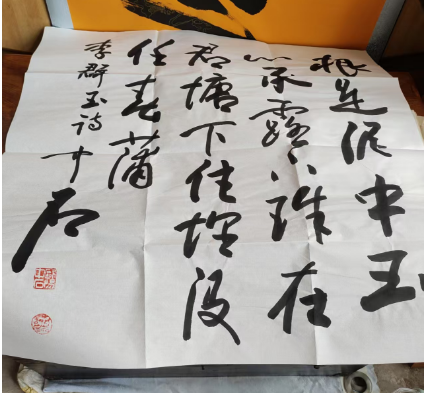 根是泥中玉
心承露下珠在
君塘下住埋没
任春蒲
李群玉诗 石